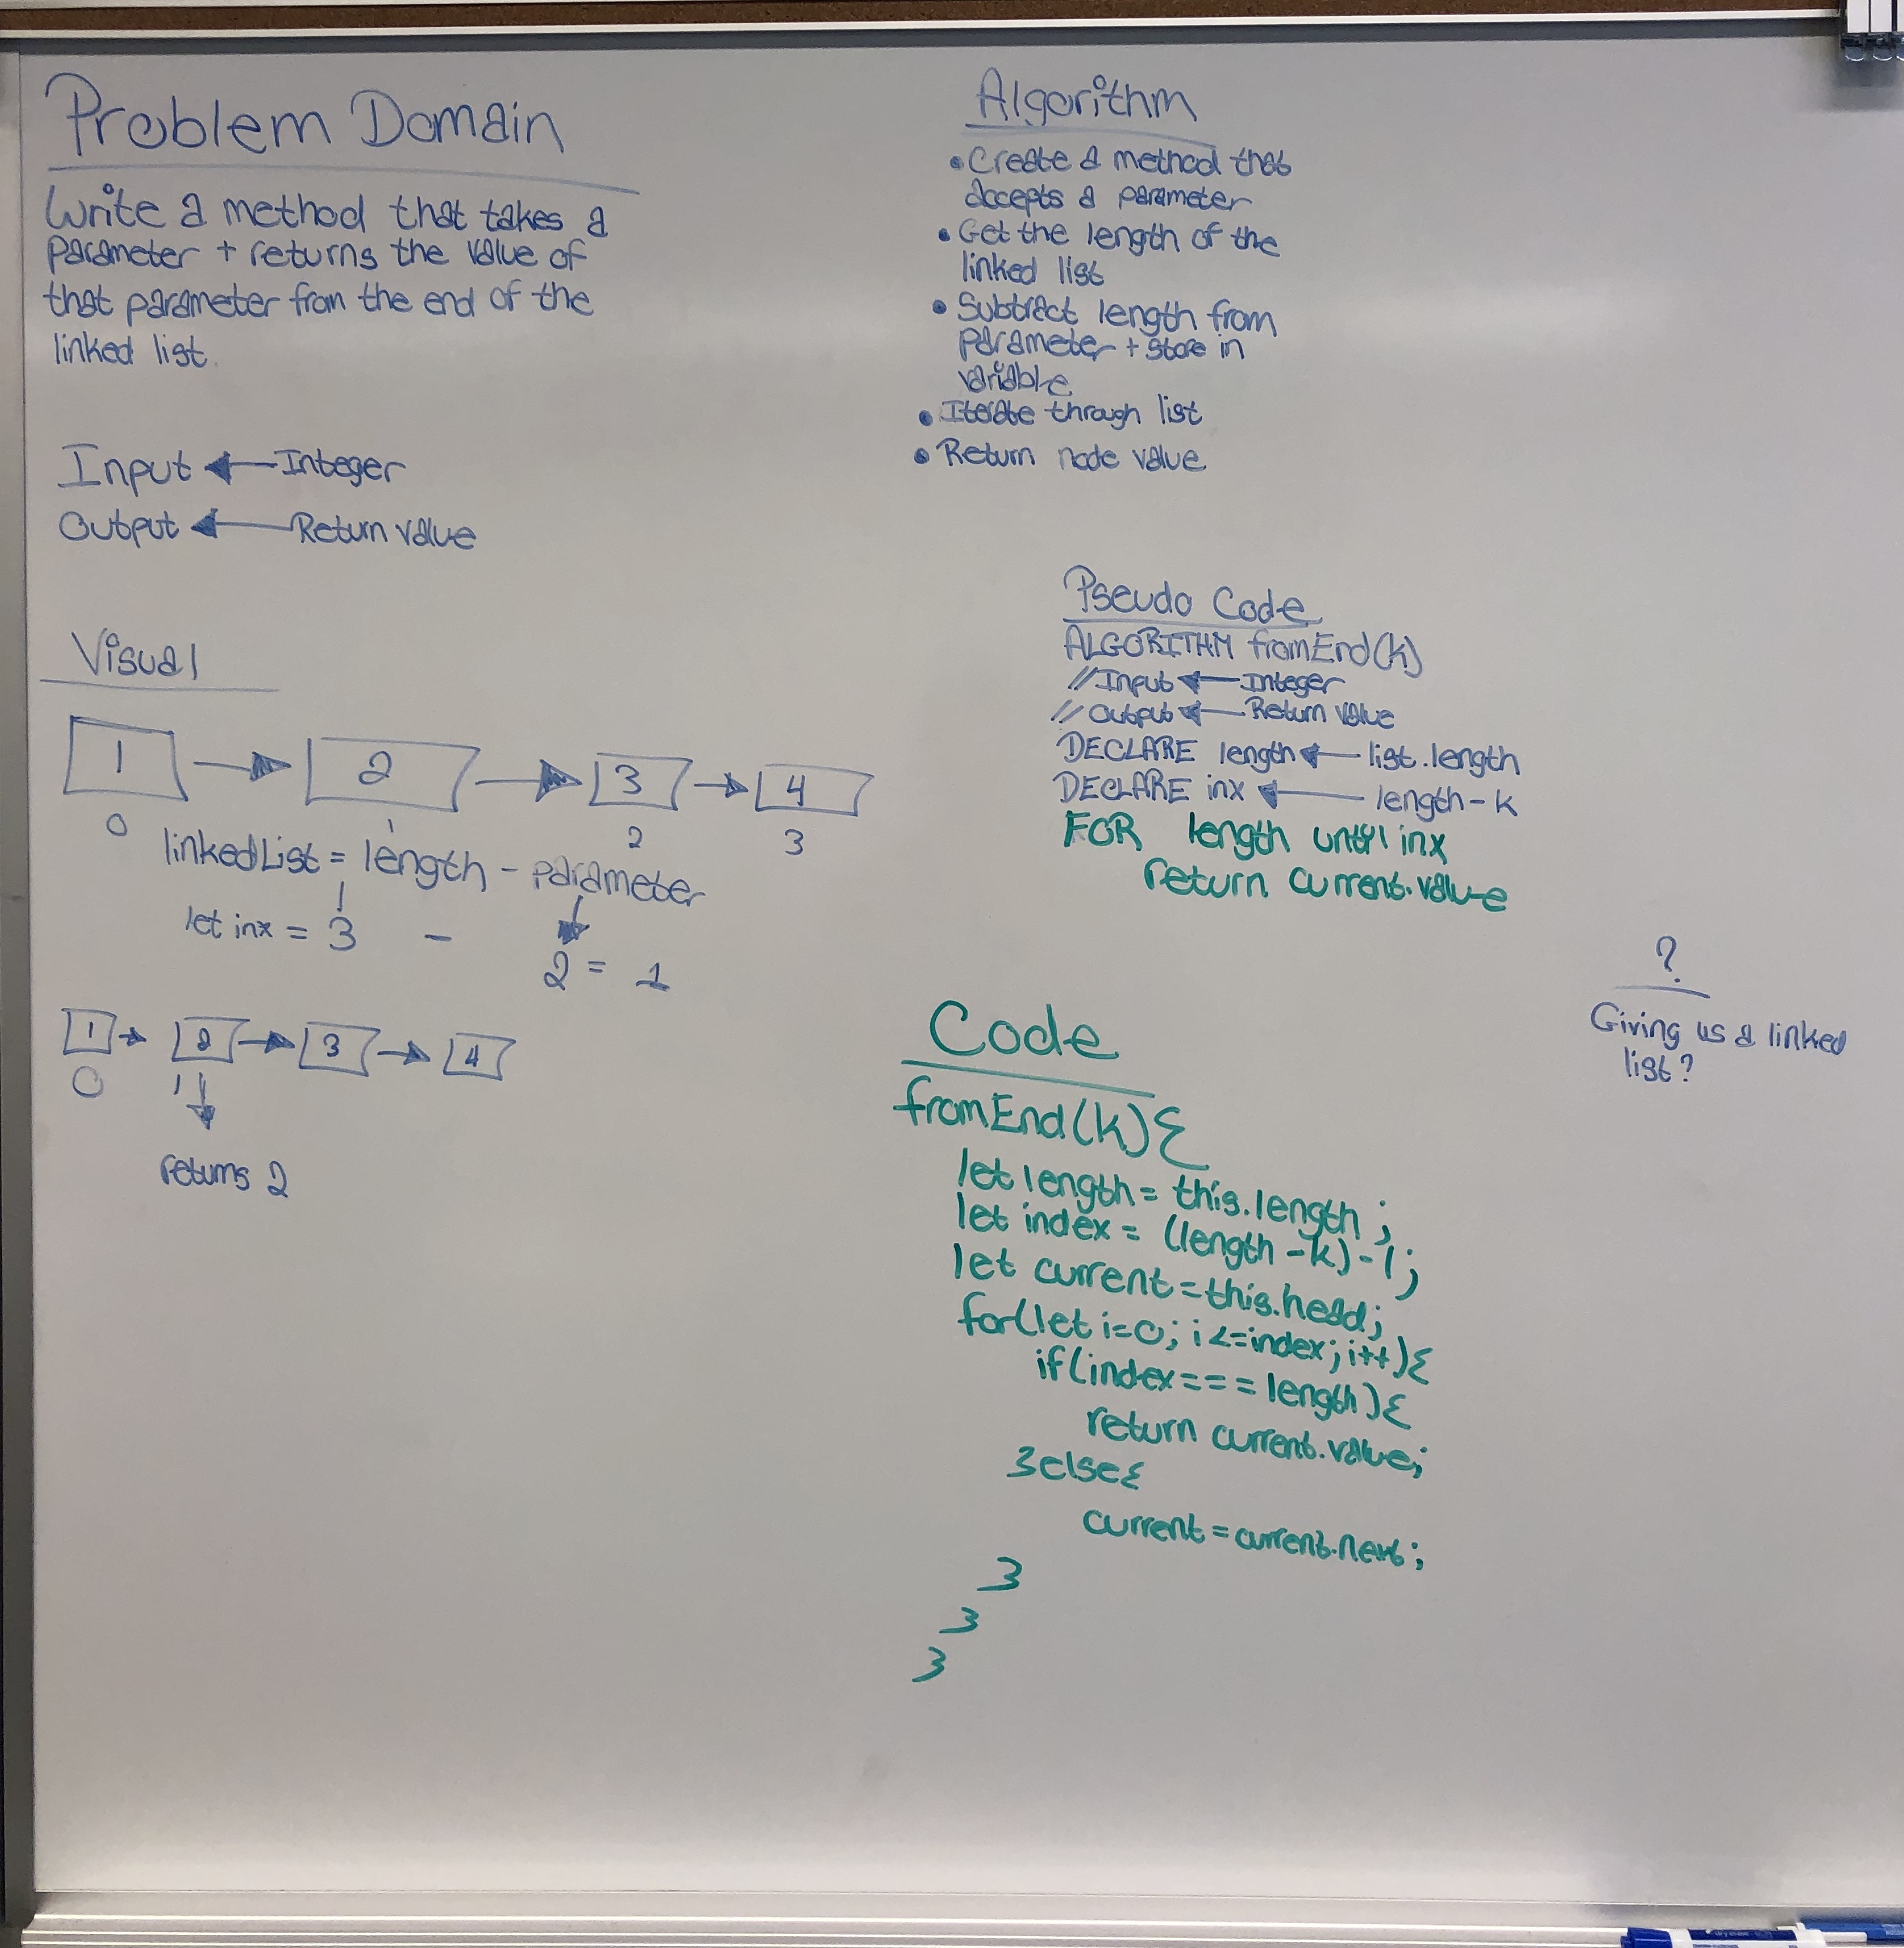 Problem Domain
Write a method that takes a
parameter + returns the value of
that parameter from the end of the
linked list.
Input ← Integer
Output ← Return value
Visual
1 → 2 → 3 → 4
0 1 2 3
linkedList = length - parameter
let inx = 3 -
2 = 1
1 → 2 → 3 → 4
0 1
returns 2
Algorithm
• Create a method that
accepts a parameter
• Get the length of the
linked list
• Subtract length from
parameter + store in
variable
• Iterate through list
• Return node value
Pseudo Code
ALGORITHM fromEnd(k)
// Input ← Integer
// Output ← Return value
DECLARE length ← list.length
DECLARE inx ← length - k
FOR length until inx
return current.value
?
Giving us a linked
list?
Code
fromEnd(k){
let length = this.length;
let index = (length - k) - 1;
let current = this.head;
for(let i=0; i<=index; i++){
if(index === length){
return current.value;
}else{
current = current.next;
}
}
}